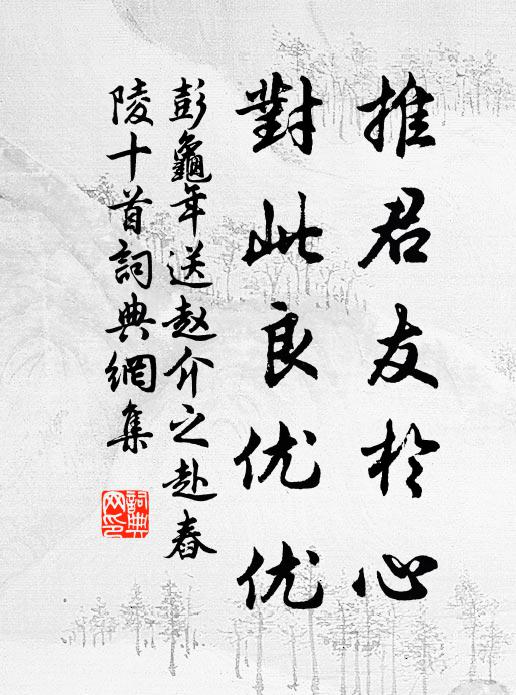 推君友於心
對此良优优
彭龜年送赵介之赴舂
陵十首詞典網集
詞典网印